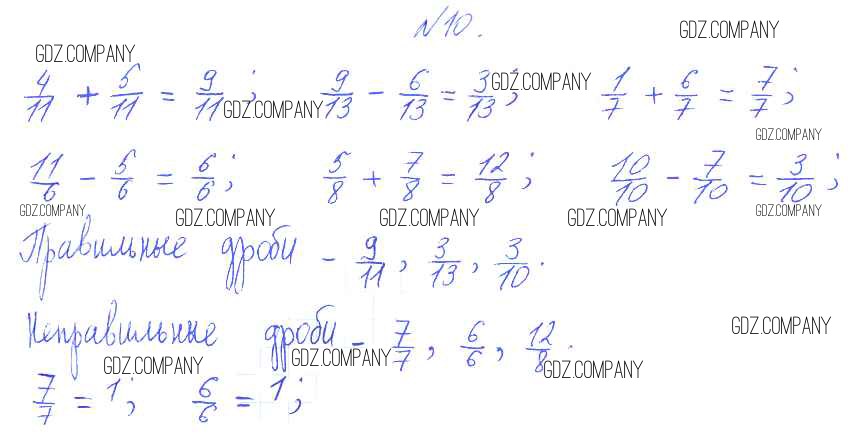 №10.
GDZ.COMPANY
GDZ.COMPANY
4/11 + 5/11 = 9/11; 9/13 - 6/13 = 3/13; 1/7 + 6/7 = 7/7;
GDZ.COMPANY GDZ.COMPANY
GDZ.COMPANY
11/6 - 5/6 = 6/6; 5/8 + 7/8 = 12/8; 10/10 - 7/10 = 3/10;
GDZ.COMPANY GDZ.COMPANY GDZ.COMPANY GDZ.COMPANY GDZ.COMPANY
Правильные дроби - 9/11, 3/13, 3/10.
GDZ.COMPANY
Неправильные дроби - 7/7, 6/6, 12/8.
GDZ.COMPANY GDZ.COMPANY GDZ.COMPANY
7/7 = 1; 6/6 = 1;